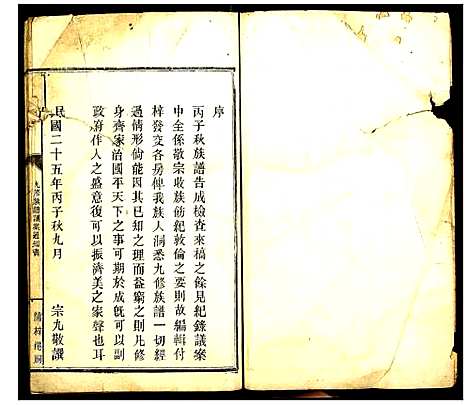 序
丙子秋族譜告成檢查來稿之餘見紀錄議案
中全係敬宗收族飭紀敦倫之要則故編輯付
梓發交各房俾我族人洞悉九修族譜一切經
過情形倘能因其已知之理而益窮之則凡修
身齊家治國平天下之事可期於成旣可以副
政府作人之盛意復可以振濟美之家聲也耳
民國二十五年丙子秋九月　宗九敬撰
九修族譜議案通知書